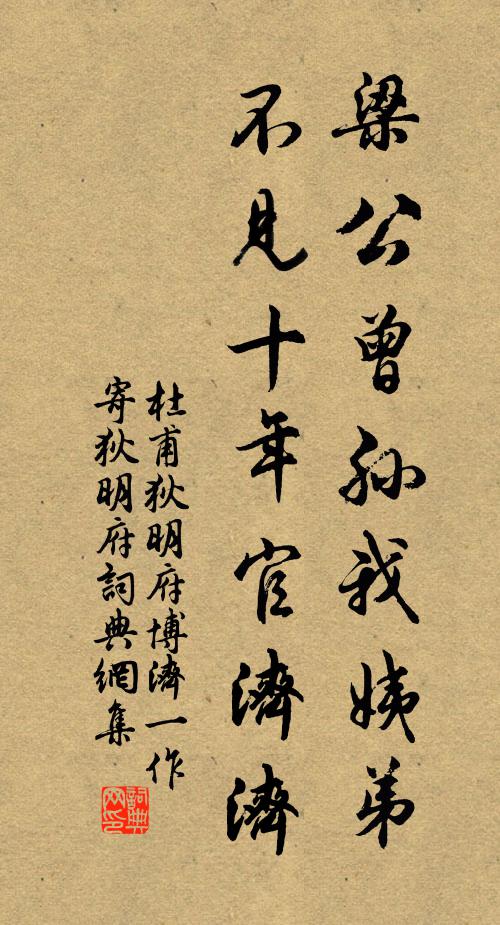 梁公曾孫我姨弟
不見十年官濟濟
杜甫狄明府博濟一作
寄狄明府詞典網集
詞典
网印